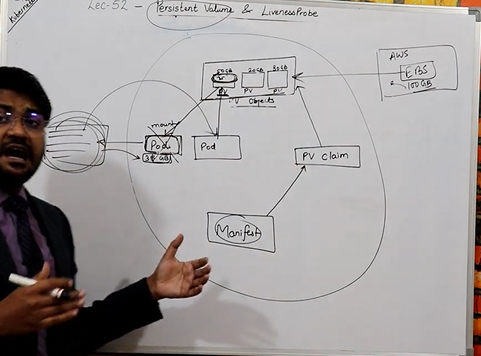 Kubernetes
Lec-52 - Persistent Volume & LivenessProbe
AWS
EBS
100GB
50GB 20GB 30GB
PV PV PV
V Objects
mount
Pod
30 GB
Pod
PV Claim
Manifest